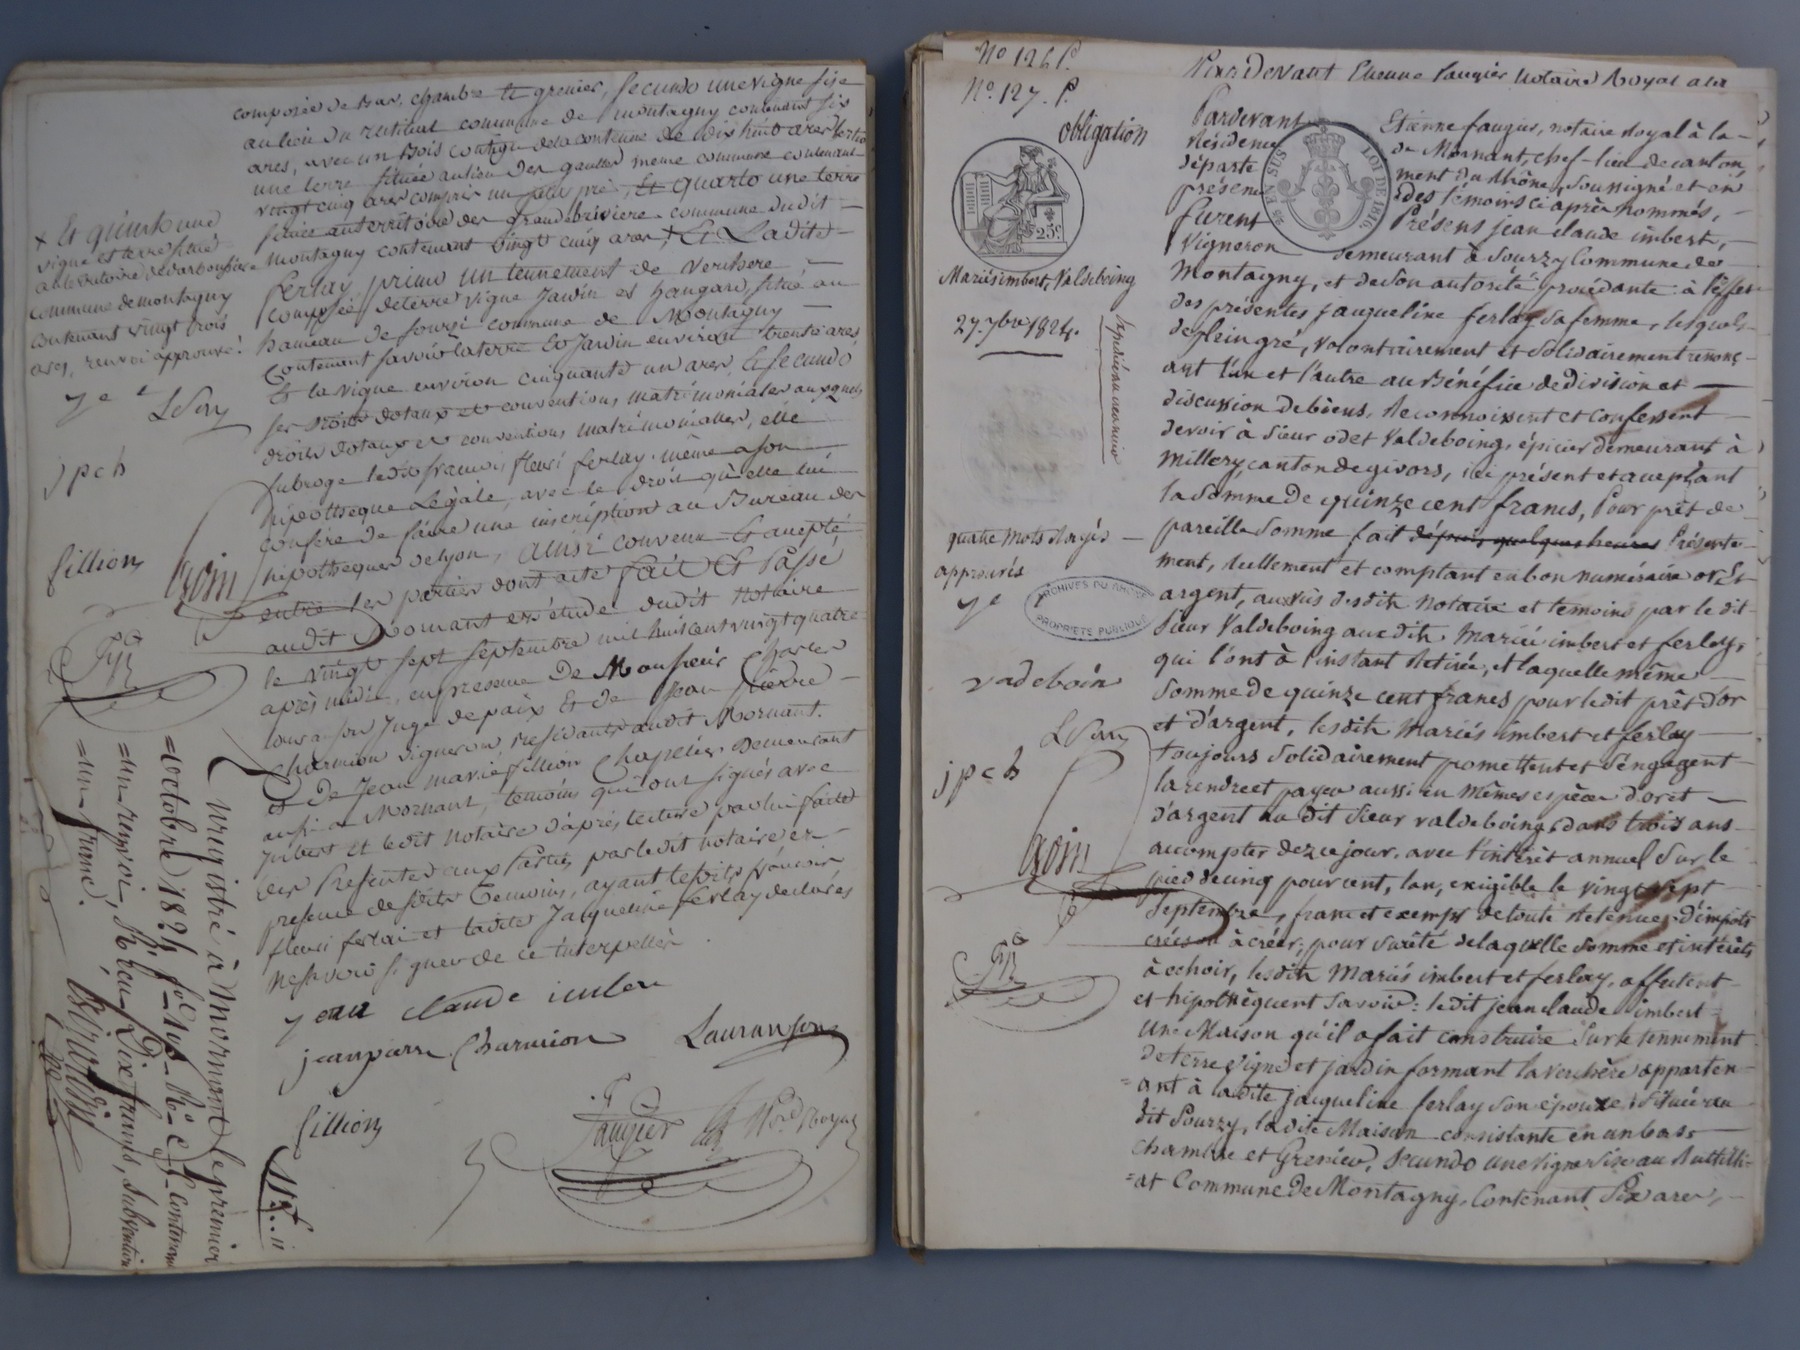 composée de Bas, chambre et grenier, secundo une vigne sise
au lieu du rutiliat commune de montagny contenant six
ares, avec un Bois contigu de la contenue de dix huit ares tertio
une terre située au lieu des gaulles même commune contenant
vingt cinq ares compris un petit pré, Et quarto une terre
située au territoire des grande bruiere commune dudit
montagny contenant vingt cinq ares, + Et Ladite
ferlay primo un tennement de verchere,
composée de terre vigne Jardin et hangard, situé au
hameau de sourzi commune de Montagny
Contenant savoir la terre et Jardin environ trente ares
Et la vigne environ cinquante un ares, Et secundo
ses droits dotaux et conventions matrimoniales auxquels
droits dotaux et conventions matrimonialles, elle
subroge ledit francois fleuri ferlay même a son
hipothèque Légale, avec le droit qu'elle lui
confère de faire une inscription au Bureau des
hipothèques de Lyon, ainsi convenu Et accepté
entre les parties dont acte fait Et Passé
audit Mornant en l'étude dudit Nottaire
le vingt sept septembre mil huit cent vingt quatre
après midi, en présence de Monsieur Charles
Lauranson Juge de paix Et de Jean Pierre
Charmion vigneron, résidants audit Mornant.
Et De Jean marie fillion Chapelier Demeurant
aussi a Mornant, témoins qui ont signés avec
Imbert et ledit notaire d'après lecture par lui faite
des Présentes aux Parties par ledit notaire en
présence desdits Témoins, ayant lesdits francois
fleuri ferlai et ladite Jacqueline ferlay déclarés
ne savoir signer de ce interpellés.
jean claude imbert
jean pierre Charmion Lauranson
fillion
faugier Nre Royal
+ Et quinto une
vigne et terre située
au territoire de
commune de montagny
contenant vingt trois
ares, renvoi approuvé.
j e i
L Son
j p c h
fillion
Enregistré à Mornant le premier
octobre 1824 fol. 
un renvoi, Reçu Dix francs, subvention
un franc.
No 126 P.
No. 127. P.
Pardevant Etienne faugier Notaire Royal a la
obligation
25c
Mariés imbert, Valdeboing
27. 7bre 1824.
25 EN SUS
LOI DE 1816
Pardevant Etienne faugier, notaire Royal à la
Résidence de Mornant, chef-lieu de canton,
départe ment du Rhône, soussigné et en
présence des témoins ci après nommés,
furent Présens jean claude imbert,
Vigneron demeurant à Sourzy Commune de
Montagny, et de son autorité procédante à l'effet
des présentes jacqueline ferlay sa femme, lesquels
de plein gré, volontairement et solidairement renonç-
ant l'un et l'autre au Bénéfice de division et
discussion de biens, Reconnoissent et Confessent
devoir à Sieur odet Valdeboing, épicier demeurant à
Millery, canton de givors, ici présent et acceptant
la Somme de quinze cent francs, Pour prêt de
pareille Somme fait depuis quelques heures Présente-
ment, Réellement et comptant en bon numéraire or Et
argent, aux vus desdits Notaire et temoins par le dit
Sieur Valdeboing aux dits Mariés imbert et ferlay,
qui l'ont à l'instant Retirée, et laquelle même
Somme de quinze cent francs pour ledit prêt d'or
et d'argent, lesdits Mariés imbert et ferlay
toujours Solidairement promettent et s'engagent
la rendre et payer aussi en mêmes espèces d'or et
d'argent au dit Sieur valdeboing, dans trois ans
a compter de ce jour, avec l'intérêt annuel Sur le
pied de cinq pour cent, l'an, exigible le vingt sept
Septembre, franc et exempt de toute Retenue d'impôts
créés ou à créer, pour Sureté de laquelle Somme et intérêts
à échoir, lesdits Mariés imbert et ferlay, affectent
et hipothèquent Savoir: ledit jean claude imbert
Une Maison qu'il a fait construire Sur le tennement
de terre vigne et jardin formant la verchère apparten-
=ant à ladite jacqueline ferlay son épouse, Située au
dit Sourzy, la dite Maison consistante en un bas,
chambre et Grenier, Secundo une vigne sise au Ruttilli-
=at Commune de Montagny, Contenant Six ares,
quatre mots Rayés
approuvés
j e
ARCHIVES DU RHÔNE
PROPRIETE PUBLIQUE
vadeboin
L Son
j p c h